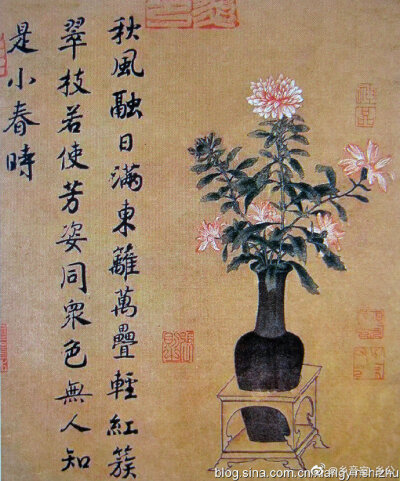 秋風融日滿東籬萬疊輕紅簇
翠枝若使芳姿同衆色無人知
是小春時
blog.sina.com.cn/xiangyinshizhu